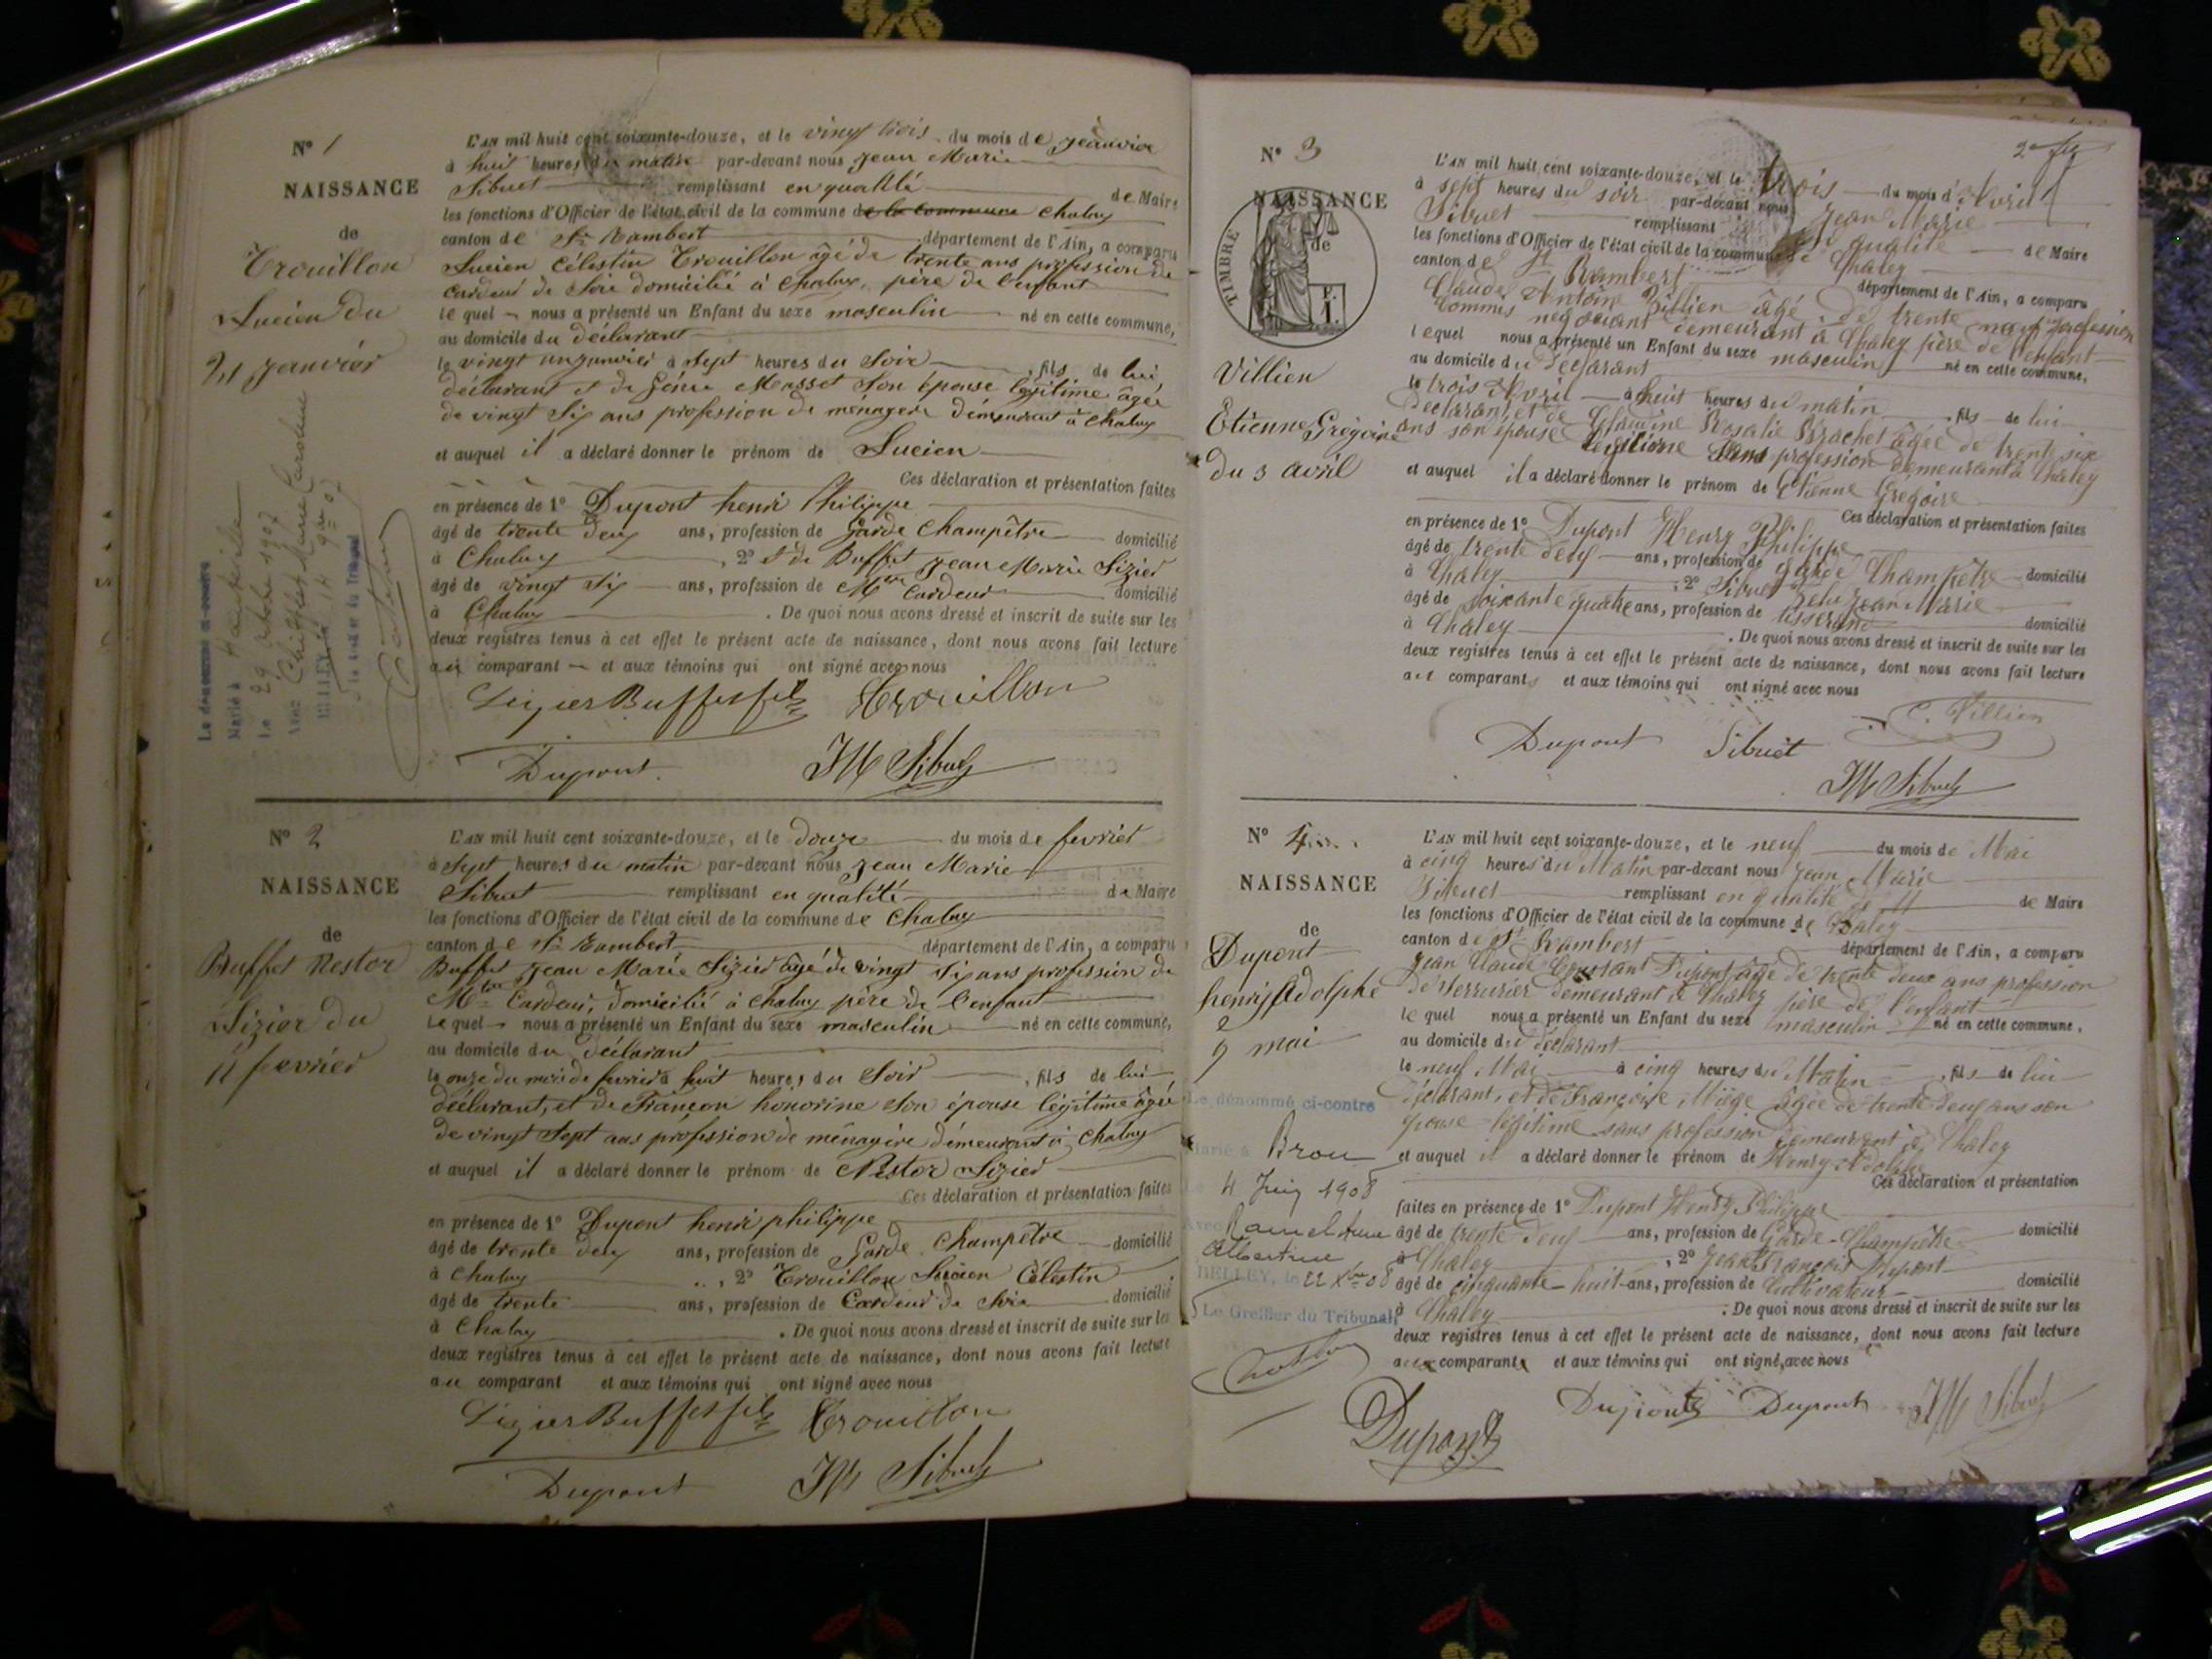 N° 1
NAISSANCE
de
Trouillon
Lucien du
21 janvier
Le dénommé ci-contre
Marié à Hauteville
le 29 octobre 1907
avec Marie Caroline
L'AN mil huit cent soixante-douze, et le vingt trois du mois de Jeanvier
à huit heures du matin par-devant nous Jean Marie
Sibuet remplissant en qualité de Maire
les fonctions d'Officier de l'état civil de la commune de la commune Chaley
canton de St Rambert département de l'Ain, a comparu
Lucien Célestin Trouillon âgé de trente ans profession de
Cardeur de Soie domicilié à Chaley, père de l'enfant
le quel nous a présenté un Enfant du sexe masculin né en cette commune,
au domicile du déclarant
le vingt un janvier à Sept heures du Soir, fils de lui
déclarant et de Masset son épouse légitime âgée
de vingt six ans profession de ménagère démeurant à Chaley
et auquel il a déclaré donner le prénom de Lucien
Ces déclaration et présentation faites
en présence de 1° Dupont henri Philippe
âgé de trente deux ans, profession de Garde Champêtre domicilié
à Chaley, 2° et de Buffet Jean Marie Sizier
âgé de vingt six ans, profession de Mtre Cardeur domicilié
à Chaley. De quoi nous avons dressé et inscrit de suite sur les
deux registres tenus à cet effet le présent acte de naissance, dont nous avons fait lecture
au comparant et aux témoins qui ont signé avec nous
Sizier Buffet fils Trouillon
Dupont JM Sibuet
N° 2
NAISSANCE
de
Buffet Nestor
Sizier du
11 fevrier
L'AN mil huit cent soixante-douze, et le douze du mois de fevrier
à Sept heures du matin par-devant nous Jean Marie
Sibuet remplissant en qualité de Maire
les fonctions d'Officier de l'état civil de la commune de Chaley
canton de St Rambert département de l'Ain, a comparu
Buffet Jean Marie Sizier âgé de vingt six ans profession de
Mtre Cardeur, domicilié à Chaley père de l'enfant
le quel nous a présenté un Enfant du sexe masculin né en cette commune,
au domicile du déclarant
le onze du mois de fevrier à huit heures du Soir, fils de lui
déclarant, et de Françon honorine son épouse légitime âgée
de vingt Sept ans profession de ménagère démeurant à Chaley
et auquel il a déclaré donner le prénom de Nestor Sizier
Ces déclaration et présentation faites
en présence de 1° Dupont henri philippe
âgé de trente deux ans, profession de Garde Champêtre domicilié
à Chaley, 2° Trouillon Lucien Célestin
âgé de trente ans, profession de Cardeur de Soie domicilié
à Chaley. De quoi nous avons dressé et inscrit de suite sur les
deux registres tenus à cet effet le présent acte de naissance, dont nous avons fait lecture
au comparant et aux témoins qui ont signé avec nous
Sizier Buffet fils Trouillon
Dupont JM Sibuet
N° 3
NAISSANCE
de
TIMBRE
Villien
Etienne Grégoire
du 3 avril
L'AN mil huit cent soixante-douze, et le trois du mois d'Avril
à sept heures du soir par-devant nous Jean Marie
Sibuet remplissant en qualité de Maire
les fonctions d'Officier de l'état civil de la commune de Chaley
canton de St Rambert département de l'Ain, a comparu
Claude Antoine Villien âgé de trente neuf profession
Commis négociant demeurant à Chaley père de l'enfant
lequel nous a présenté un Enfant du sexe masculin né en cette commune,
au domicile du déclarant
le trois Avril à huit heures du matin, fils de lui
déclarant, et de Claudine Rosalie Brachet âgée de trente six
ans son épouse légitime Sans profession demeurant à Chaley
et auquel il a déclaré donner le prénom de Etienne Grégoire
Ces déclaration et présentation faites
en présence de 1° Dupont Henry Philippe
âgé de trente deux ans, profession de garde Champêtre domicilié
à Chaley, 2° Sibuet Jean Marie
âgé de soixante quatre ans, profession de tisserand domicilié
à Chaley. De quoi nous avons dressé et inscrit de suite sur les
deux registres tenus à cet effet le présent acte de naissance, dont nous avons fait lecture
aux comparants et aux témoins qui ont signé avec nous
C. Villien
Dupont Sibuet
JM Sibuet
N° 4
NAISSANCE
de
Dupont
henry Adolphe
9 mai
Le dénommé ci-contre
marié à Brou
le 4 Juin 1908
avec
Albertine
BELLEY, le 22 Xbre 08
Le Greffier du Tribunal
L'AN mil huit cent soixante-douze, et le neuf du mois de Mai
à cinq heures du Matin par-devant nous Jean Marie
Sibuet remplissant en qualité de Maire
les fonctions d'Officier de l'état civil de la commune de Chaley
canton de St Rambert département de l'Ain, a comparu
Jean Claude Constant Dupont âgé de trente deux ans profession
de serrurier demeurant à Chaley père de l'enfant
le quel nous a présenté un Enfant du sexe masculin né en cette commune,
au domicile du déclarant
le neuf Mai à cinq heures du Matin, fils de lui
déclarant, et de Françoise Miège âgée de trente deux ans son
épouse légitime sans profession demeurant à Chaley
et auquel il a déclaré donner le prénom de Henry Adolphe
Ces déclaration et présentation
faites en présence de 1° Dupont Henry Philippe
âgé de trente deux ans, profession de Garde-Champêtre domicilié
à Chaley, 2° Jean François Dupont
âgé de cinquante-huit ans, profession de Cultivateur domicilié
à Chaley. De quoi nous avons dressé et inscrit de suite sur les
deux registres tenus à cet effet le présent acte de naissance, dont nous avons fait lecture
aux comparants et aux témoins qui ont signé avec nous
Dupont Dupont Dupont JM Sibuet